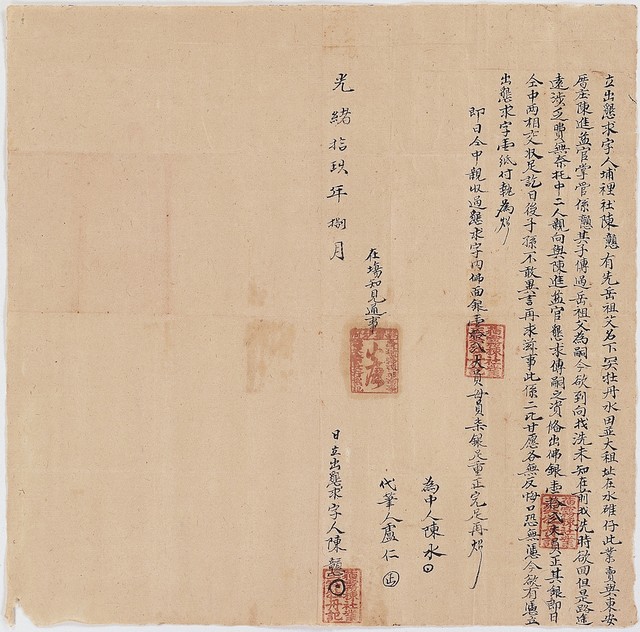 立出懇求字人埔裡社陳戇有先岳祖父名下買牡丹水田並大租址在水碓仔此業賣與東安
厝庄陳進益官掌管係戇其子傳過岳祖父為嗣今欲到向找洗未知在前找洗時欲回但是路途
遠涉乏費無奈托中二人親向與陳進益官懇求傳嗣之資格出佛銀壹拾弍大員正其銀即日
仝中兩相交收足訖日後子孫不敢異言再求滋事此係二比甘愿各無反悔口恐無憑今欲有憑立
出懇求字壹紙付執為炤
即日仝中親收過懇求字內佛面銀壹拾弍大員每員秉銀足重正完足再炤
為中人陳水
代筆人盧仁
在場知見通事
光緒拾玖年捌月
日立出懇求字人陳戇